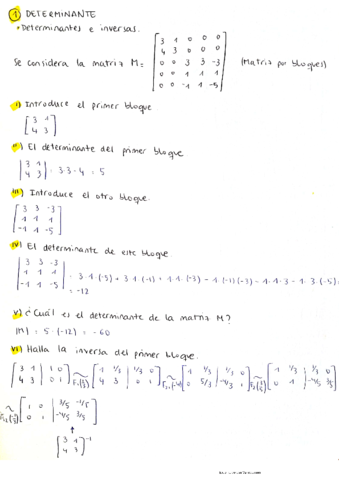 ① DETERMINANTE
• Determinantes e inversas.
Se considera la matriz M = [3 1 0 0 0; 4 3 0 0 0; 0 0 3 3 -3; 0 0 1 1 1; 0 0 -1 1 -5] (Matriz por bloques)
i) Introduce el primer bloque
[3 1; 4 3]
ii) El determinante del primer bloque
|3 1; 4 3| = 3·3-4 = 5
iii) Introduce el otro bloque.
[3 3 -3; 1 1 1; -1 1 -5]
iv) El determinante de este bloque.
|3 3 -3; 1 1 1; -1 1 -5| = 3·1·(-5) + 3·1·(-1) + 1·1·(-3) - 1·(-1)(-3) - 1·1·3 - 1·3·(-5) =
= -12
v) ¿Cuál es el determinante de la matriz M?
|M| = 5·(-12) = -60
vi) Halla la inversa del primer bloque.
[3 1 | 1 0; 4 3 | 0 1] ~ [1 1/3 | 1/3 0; 4 3 | 0 1] ~ [1 1/3 | 1/3 0; 0 5/3 | -4/3 1] ~ [1 1/3 | 1/3 0; 0 1 | -4/5 3/5]
~ [1 0 | 3/5 -1/5; 0 1 | -4/5 3/5]
↑
[3 1; 4 3]⁻¹